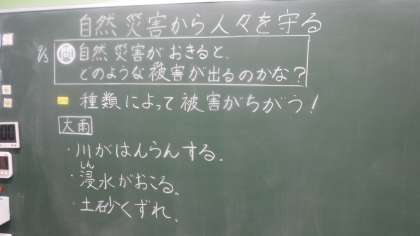 自然災害から人々を守る
自然災害がおきると、
どのような被害が出るのかな？
種類によって被害がちがう！
大雨
・川がはんらんする。
・浸水がおこる。
しん
・土砂くずれ。